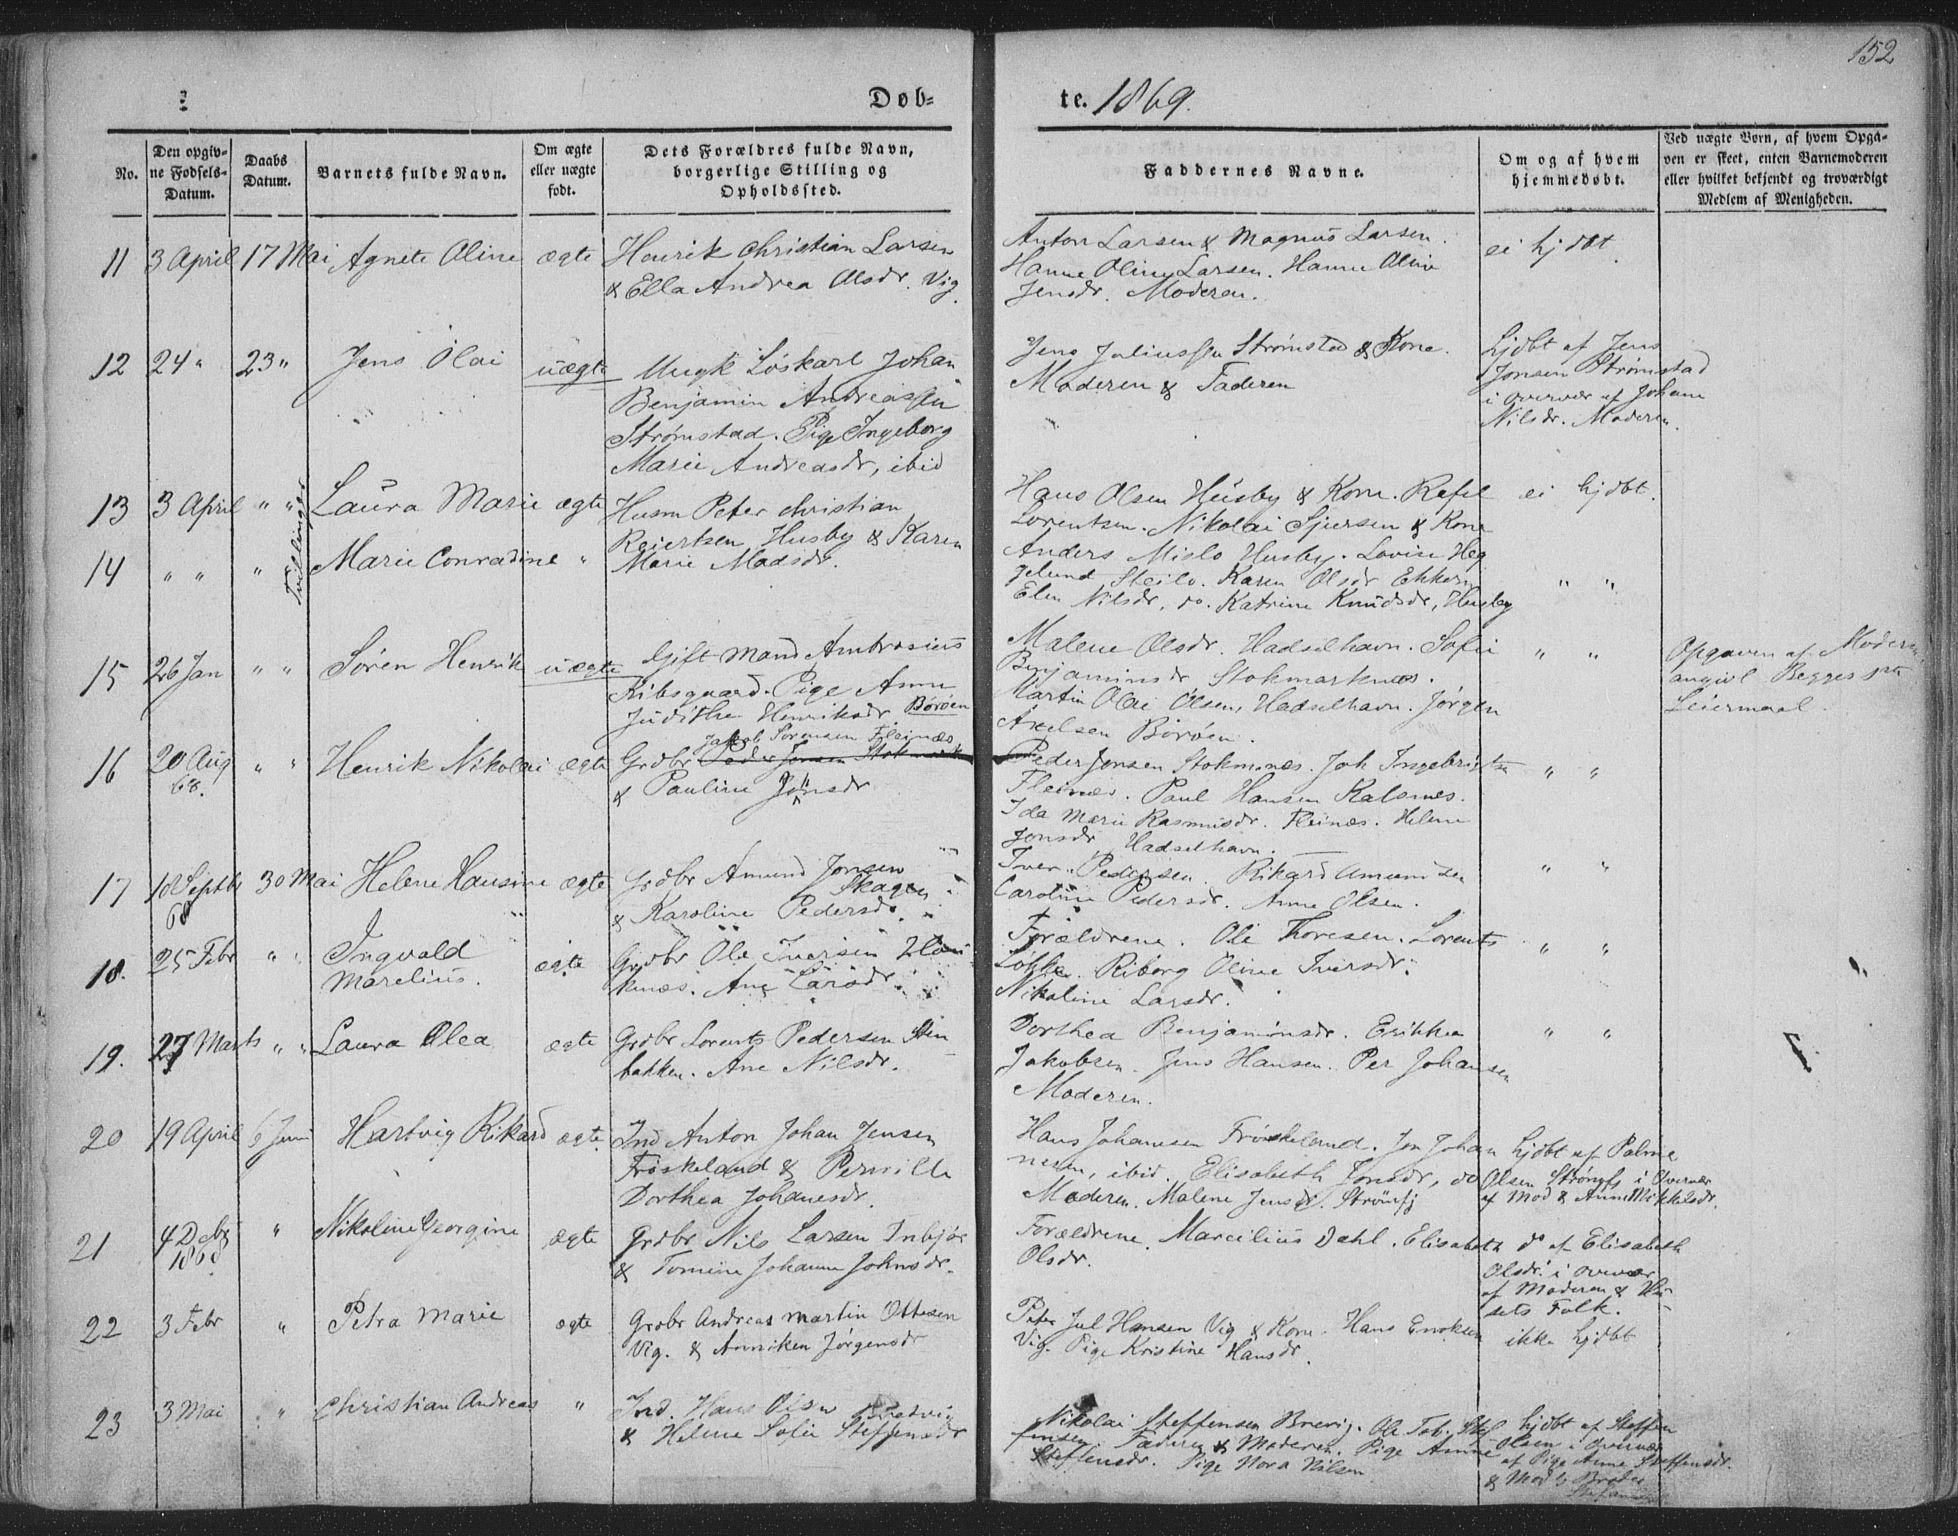 152
Døb-
te. 1869.
No.
Den opgiv-
ne Fødsels-
Datum.
Daabs
Datum.
Barnets fulde Navn.
Om ægte
eller uægte
født.
Dets Forældres fulde Navn,
borgerlige Stilling og
Opholdssted.
Faddernes Navne.
Om og af hvem
hjemmedøbt.
Ved uægte Børn, af hvem Opga-
ven er skeet, enten Barnemoderen
eller hvilket bekjendt og troværdigt
Medlem af Menigheden.
11 3 April 17 Mai Agnete Oline ægte
Henrik Christian Larsen
& Ella Andrea Olsdr. Vig
Anton Larsen & Magnus Larsen.
Hanne Oline Larsen. Hanne Oline
Jensdr. Moderen.
ei hjdbt.
12 24 " 23 " Jens Olai uægte
Ungk Løskarl Johan
Benjamin Andreassen
Strømstad. Pige Ingeborg
Marie Andreasdr, ibid
Jens Juliussen Strømstad & Kone.
Moderen & Faderen
hjdbt af Jens
Jonsen Strømstad
i overvær af Johane
Nilsdr. Moderen.
13 3 April " " Laura Marie ægte
Husm Peter Christian
Reiertsen Husby & Karen
Marie Madsdr.
Hans Olsen Husby & Kone. Rafel
Lorentsen. Nikolai Sjursen & Kone
Anders Mislo Husby. Lovise Heg
gelund Steilo. Karen Olsdr Ekkern
Elen Nilsdr, do. Katrine Knudsdr, Husby
ei hjdbt.
14 " " " Marie Conradine "
" "
Tvillinger
15 26 Jan " " Søren Henrik uægte
Gift Mand Ambrosius
Ribsgaard. Pige Anne
Judithe Henriksdr Børøen
Malene Olsdr. Hadselhavn. Sofie
Benjaminsdr Stokmarknæs.
Martin Olai Olsen, Hadselhavn. Jørgen
Axelsen Børøen.
" "
Opgaven af Moderen
angivl Begges
Leiermaal.
16 20 Aug " " Henrik Nikolai ægte
68.
Jakob Sørensen Fleinæs
Grdbr Peder Jonsen Stokmark
& Pauline Jonsdr
Peder Jonsen Stokmnæs. Joh Ingebrigtsn
Fleinæs. Paul Hansen Kalsnes.
Ida Marie Rasmusdr. Fleinæs. Helene
Jonsdr, Hadselhavn.
" "
17 18 Septbr 30 Mai Helene Hansine ægte
68
Grdbr Amund Jonsen
Skagen
& Karoline Pedersdr.
Iver Pedersen. Rikard Amundsen
Caroline Pedersdr. Anne Olsen.
" "
18. 25 Febr " " Ingvald
Marelius. ægte
Grdbr Ole Iversen
knæs. Ane Larsdr.
Forældrene. Ole Thoresen. Lorents
Løkke. Riborg Oline Iversdr.
Nikoline Larsdr.
" "
19. 27 Marts " " Laura Olea ægte
Grdbr Lorents Pedersen Sten
bakken. Ane Nilsdr.
Dorthea Benjaminsdr. Erikka
Jakobsen. Jens Hansen. Per Johansen
Moderen.
" "
20 19 April 6 Juni Hartvig Rikard ægte
Ind Anton Johan Jensen
Frøskeland & Pernille
Dorthea Johanesdr.
Hans Johansen Frøskeland. Jon Johan
nesen, ibid. Elisabeth Jonsdr, do
Moderen. Malene Jensdr. Strønsfj
hjdbt af Palme
Olsen Strøngfs i Overvær
af Mod & Anne Mikkelsdr.
21 4 Debr " Nikoline Georgine ægte
1868
Grdbr Nils Larsen Indbjør
& Tomine Johanne Johnsdr.
Forældrene. Marcilius Dahl. Elisabeth
Olsdr.
do af Elisabeth
Olsdr. i overvær
af Moderen & Hu-
sets Folk.
22 3 Febr " Petra Marie ægte
Grdbr Andreas Martin Ottesen
Vig. & Anniken Jørgensdr
Peter Jul Hansen Vig & Kone. Hans Enoksen
Vig. Pige Kristine Hansdr.
ikke hjdbt
23 3 Mai " Christian Andreas "
Ind. Hans Olsen
& Helene Sofie Steffensdr
Nikolai Steffensen Brevig. Ole Tob. Stef
fensen. Faderen & Moderen. Pige Anne
Steffensdr. Pige Nora Nilsen
hjdbt af Steffen
Olsen i overvær
af Pige Anne Steffensdr.
& Mods Broder